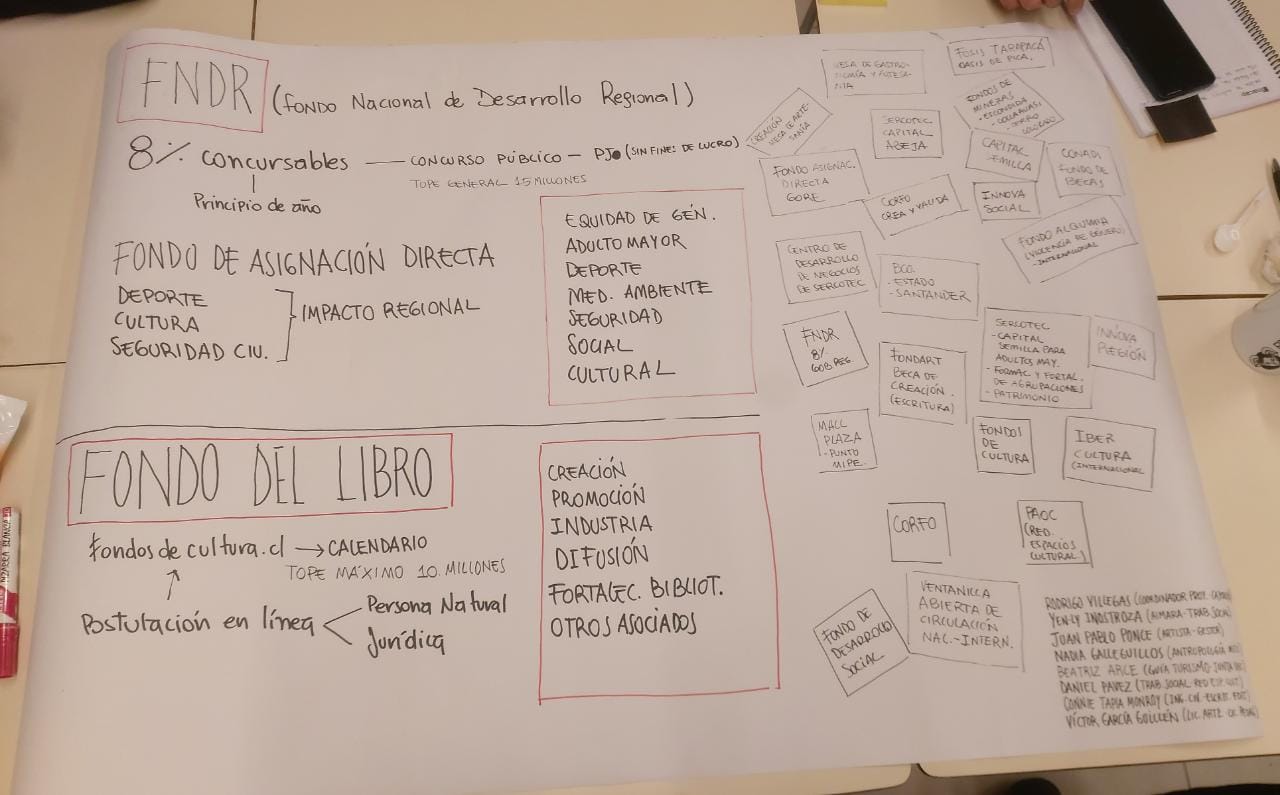 FNDR (FONDO NACIONAL de DESARROLLO REGIONAL)
8% CONCURSABLES — CONCURSO PÚBLICO — PJ (SIN FINES DE LUCRO)
TOPE GENERAL 15 MILLONES
Principio de año
FONDO DE ASIGNACIÓN DIRECTA
DEPORTE
CULTURA
SEGURIDAD CIU.
IMPACTO REGIONAL
EQUIDAD DE GÉN.
ADULTO MAYOR
DEPORTE
MED. AMBIENTE
SEGURIDAD
SOCIAL
CULTURAL
FONDO DEL LIBRO
fondos de cultura.cl → CALENDARIO
TOPE MÁXIMO 10 MILLONES
Postulación en línea
Persona Natural
Jurídica
CREACIÓN
PROMOCIÓN
INDUSTRIA
DIFUSIÓN
FORTALEC. BIBLIOT.
OTROS ASOCIADOS
MESA DE GASTRO-
NOMÍA Y ARTESA-
NIA
FOSIS TARAPACÁ
OASIS DE PICA.
CREACIÓN
MESA DE ARTE-
SANÍA
SERCOTEC
CAPITAL
ABEJA
FONDOS DE
MINERAS
- ESCONDIDA
- COLLAHUASI
- CERRO
COLORADO
CAPITAL
SEMILLA
CONADI
FONDO DE
BECAS
FONDO ASIGNAC.
DIRECTA
GORE
CORFO
CREA Y VALIDA
INNOVA
SOCIAL
FONDO ALQUIMIA
(VIOLENCIA DE GÉNERO)
- INTERNACIONAL
CENTRO DE
DESARROLLO
DE NEGOCIOS
DE SERCOTEC
BCO.
- ESTADO
- SANTANDER
FNDR
8%
GOB REG.
FONDART
BECA DE
CREACIÓN.
(ESCRITURA)
SERCOTEC
- CAPITAL
SEMILLA PARA
ADULTOS MAY.
- FORMAC. Y FORTAL.
DE AGRUPACIONES
- PATRIMONIO
INNOVA
REGIÓN
MALL
PLAZA
- PUNTO
MIPE.
FONDOS
DE
CULTURA
IBER
CULTURA
(INTERNACIONAL
CORFO
PAOC
(RED.
ESPACIOS
CULTURAL)
FONDO DE
DESARROLLO
SOCIAL
VENTANILLA
ABIERTA DE
CIRCULACIÓN
NAC. - INTERN.
RODRIGO VILLEGAS (COORDINADOR PROY.
YENLY INOSTROZA (AIMARA - TRAB. SOCIAL
JUAN PABLO PONCE (ARTISTA - GESTOR)
NADIA GALLEGUILLOS (ANTROPOLOGÍA
BEATRIZ ARCE (GUÍA TURISMO - JUNTA
DANIEL PAVEZ (TRAB. SOCIAL RED ESP. CULT)
CONNIE TAPIA MONROY (ING. CIV. - ESCRIT. EDIT)
VÍCTOR GARCÍA GUILLÉN (LIC. ARTE